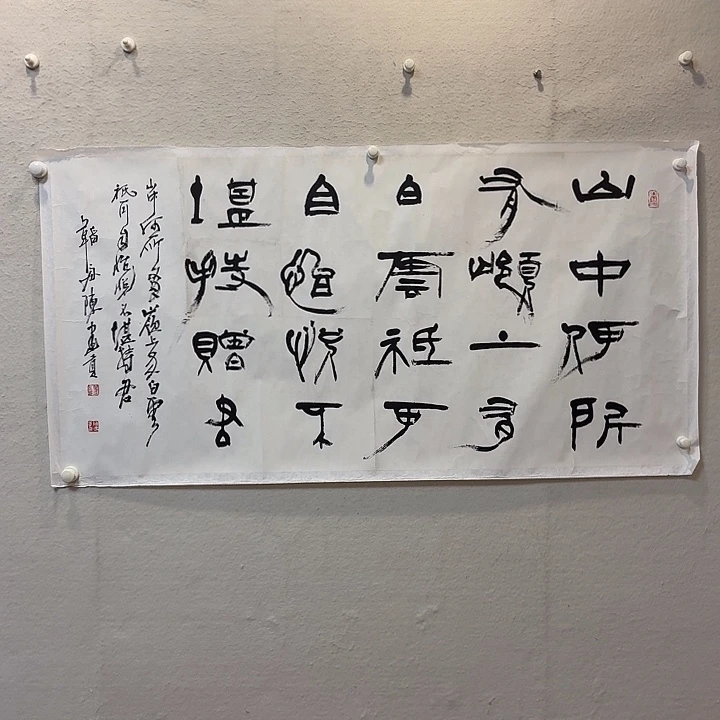 山中何所
有嶺上多
白雲祇可
自怡悅不
堪持贈君
山中何所有嶺上多白雲
祇可自怡悅不堪持贈君
陳